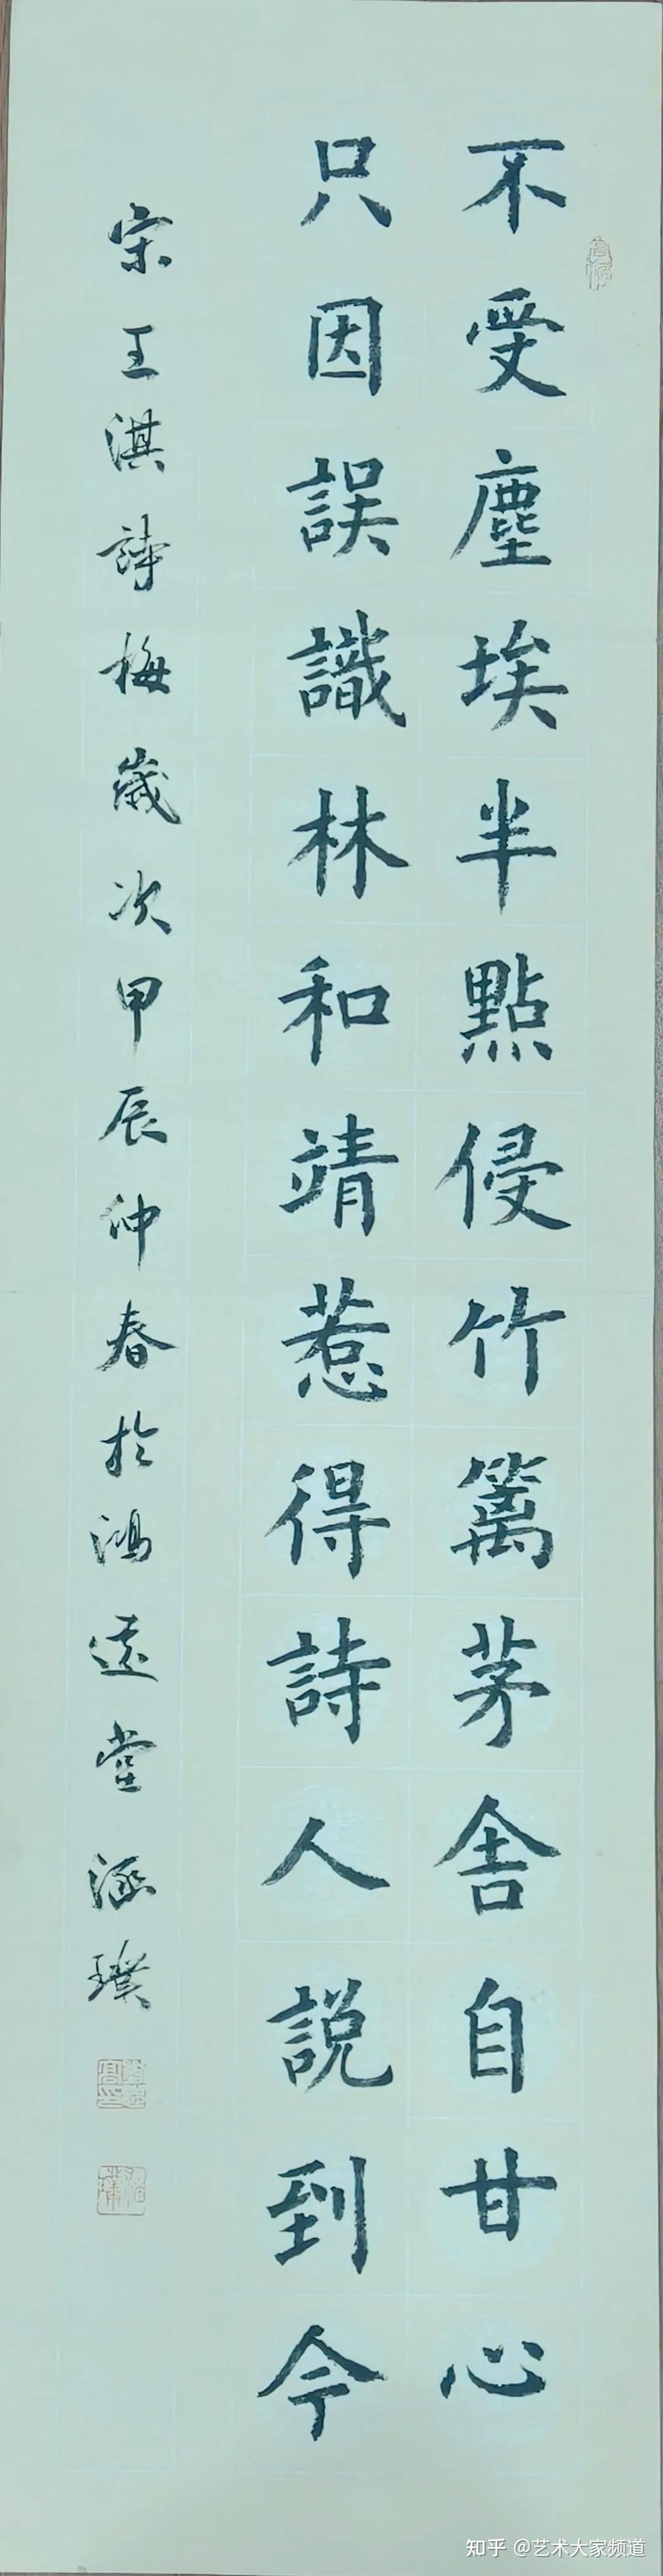 不受塵埃半點侵竹籬茅舍自甘心
只因誤識林和靖惹得詩人説到今
宋王淇詩梅歲次甲辰仲春於鴻遠堂涵璞
知乎 @艺术大家频道